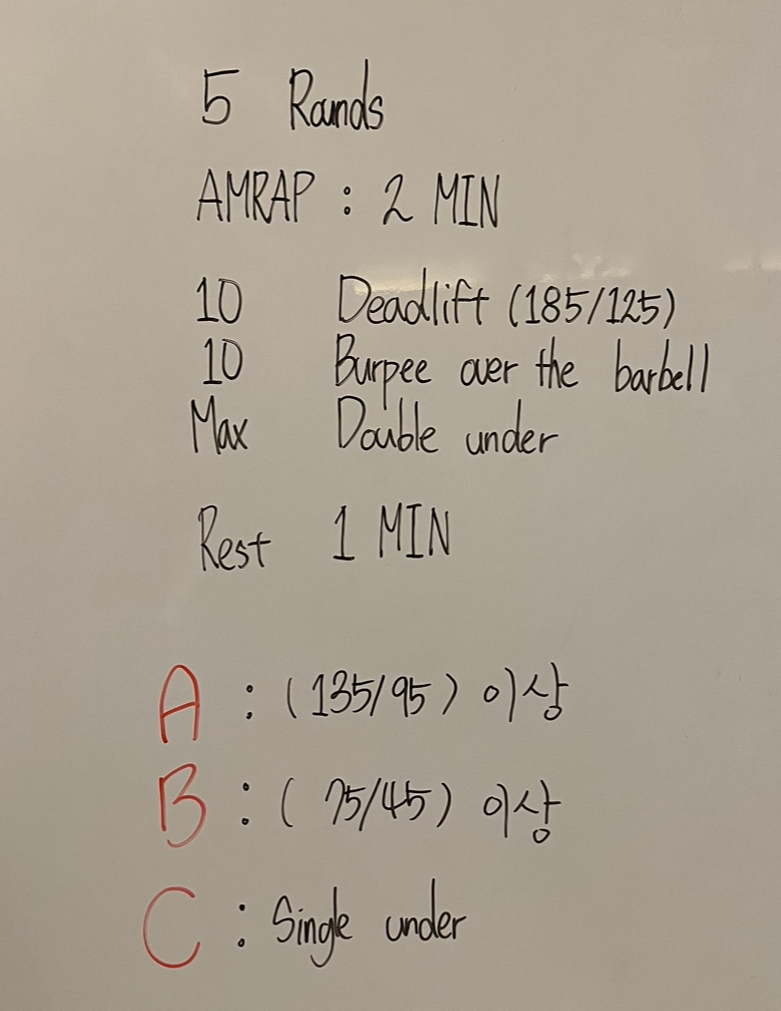 5 Rounds
AMRAP : 2 MIN
10 Deadlift (185/125)
10 Burpee over the barbell
Max Double under
Rest 1 MIN
A : (135/95) 이상
B : (75/45) 이상
C : Single under